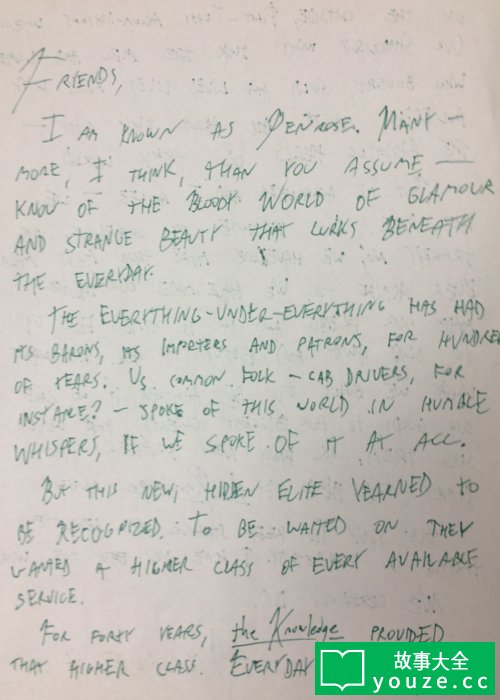 FRIENDS,
I AM KNOWN AS PENROSE. MANY —
MORE, I THINK, THAN YOU ASSUME —
KNOW OF THE BLOODY WORLD OF GLAMOUR
AND STRANGE BEAUTY THAT LURKS BENEATH
THE EVERYDAY.
THE EVERYTHING-UNDER-EVERYTHING HAS HAD
ITS BARONS, ITS IMPORTERS AND PATRONS, FOR HUNDRED
OF YEARS. US COMMON FOLK — CAB DRIVERS, FOR
INSTANCE? — SPOKE OF THIS WORLD IN HUMBLE
WHISPERS, IF WE SPOKE OF IT AT ALL.
BUT THIS NEW, HIDDEN ELITE YEARNED TO
BE RECOGNIZED. TO BE WAITED ON. THEY
WANTED A HIGHER CLASS OF EVERY AVAILABLE
SERVICE.
FOR FORTY YEARS, the Knowledge PROVIDED
THAT HIGHER CLASS. EVERYDAY
故事大全
youze.cc